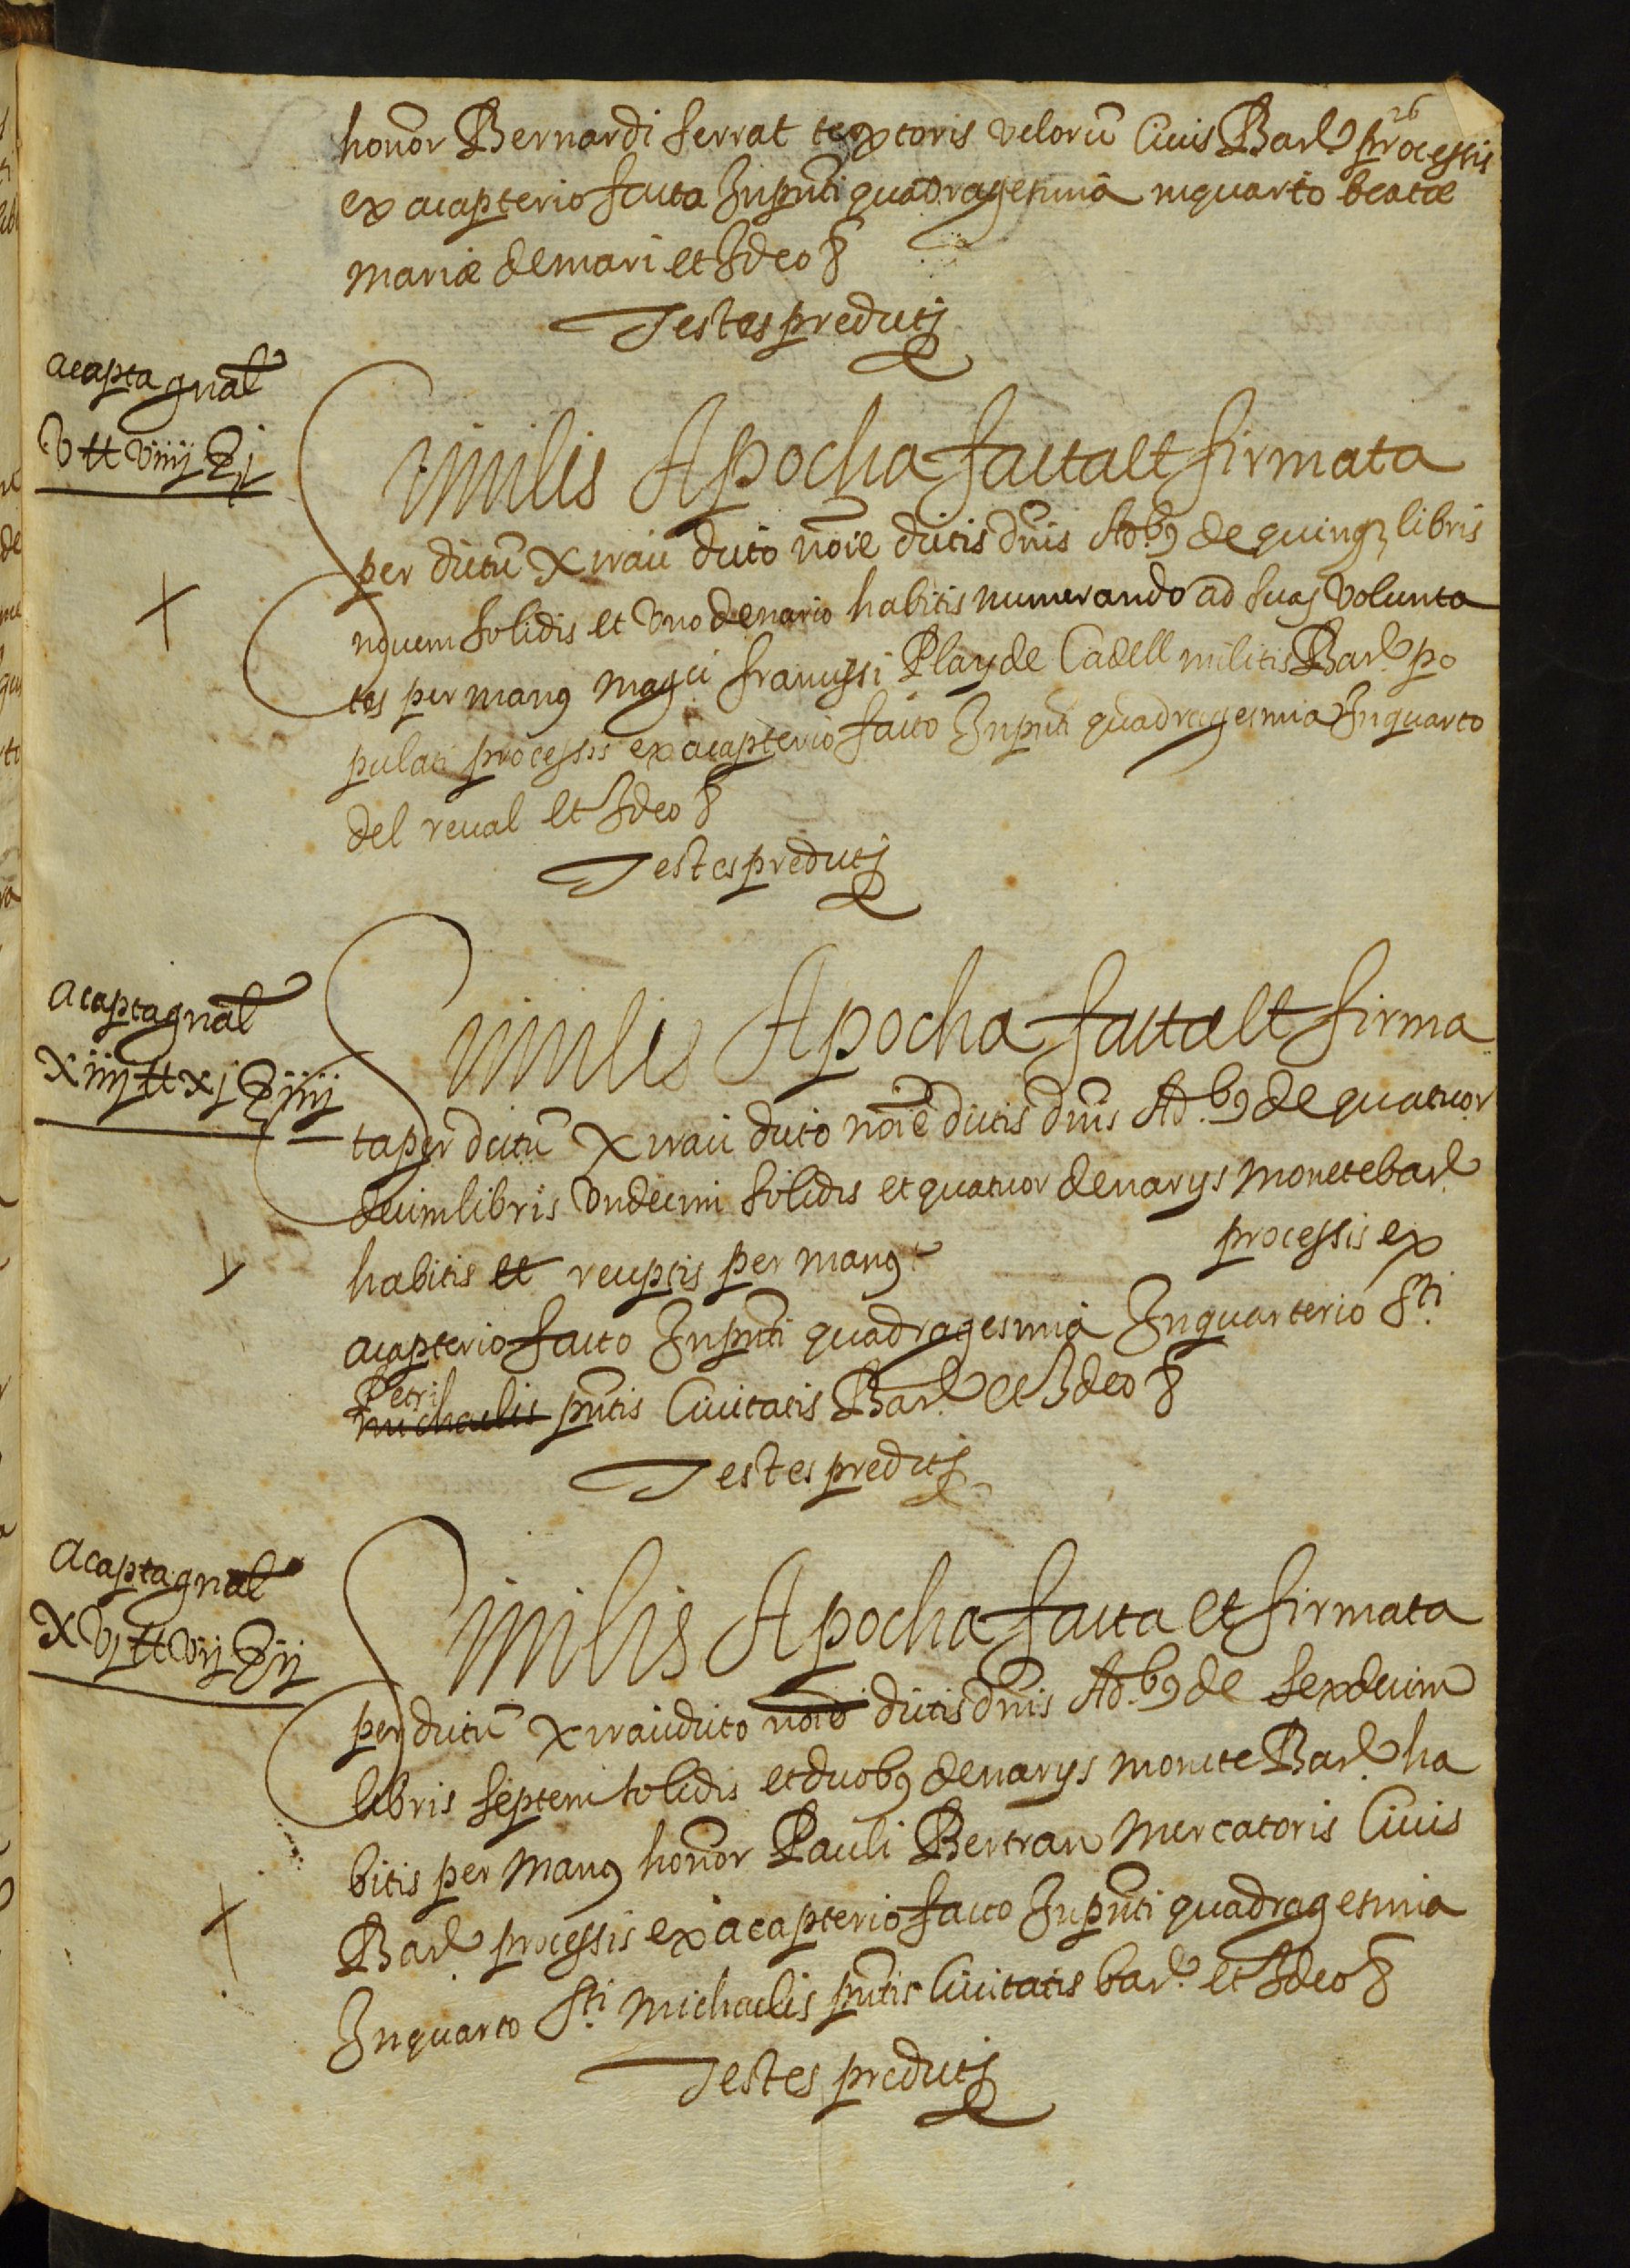 26
honor Bernardi serrat textoris velorū Ciuis Bar.ᵉ processis
ex acapterio facta Inpn̄ti quadragesima inquarto beatæ
mariæ demari et Ideo &
Testes predicti
acapta gnāl
V ₶ viiij ß j
Similis Apocha facta et firmata
per dictū Xirau dicto noīe dictis dn̄is Ad.bꝰ de quinqꝫ libris
nouem solidis et Vno denario habitis numerando ad suas Volunta
tes per manꝰ mag.ci francisci Plasde Cadell militis Bar.ᵉ po
pulati processis ex acapterio facto Inpn̄ti quadragesima Inquarto
del reual et Ideo &
Testes predicti
acapta gnāl
Xiiij ₶ xj ß iiij
Similis Apocha facta et firma
ta per dictū Xirau dicto noīe dictis dn̄is Ad.bꝰ de quatuor
decim libris Vndecim solidis et quatuor denarijs monete bar.ᵉ
habitis et receptis per manꝰ processis ex
acapterio facto Inpn̄ti quadragesima Inquarterio S.ti
Petri
michaelis pn̄tis Ciuitatis Bar.ᵉ et Ideo &
Testes predicti
acapta gnāl
XVj ₶ Vij ß ij
Similis Apocha facta et firmata
per dictū Xirau dicto noīe dictis dn̄is Ad.bꝰ de sexdecim
libris septem solidis et duobꝰ denarijs monete Bar.ᵉ ha
bitis per manꝰ honor Pauli Bertran Mercatoris Ciuis
Bar.ᵉ processis ex acapterio facto Inpn̄ti quadragesima
Inquarto S.ti michaelis pn̄tis Ciuitatis bar.ᵉ et Ideo &
Testes predicti